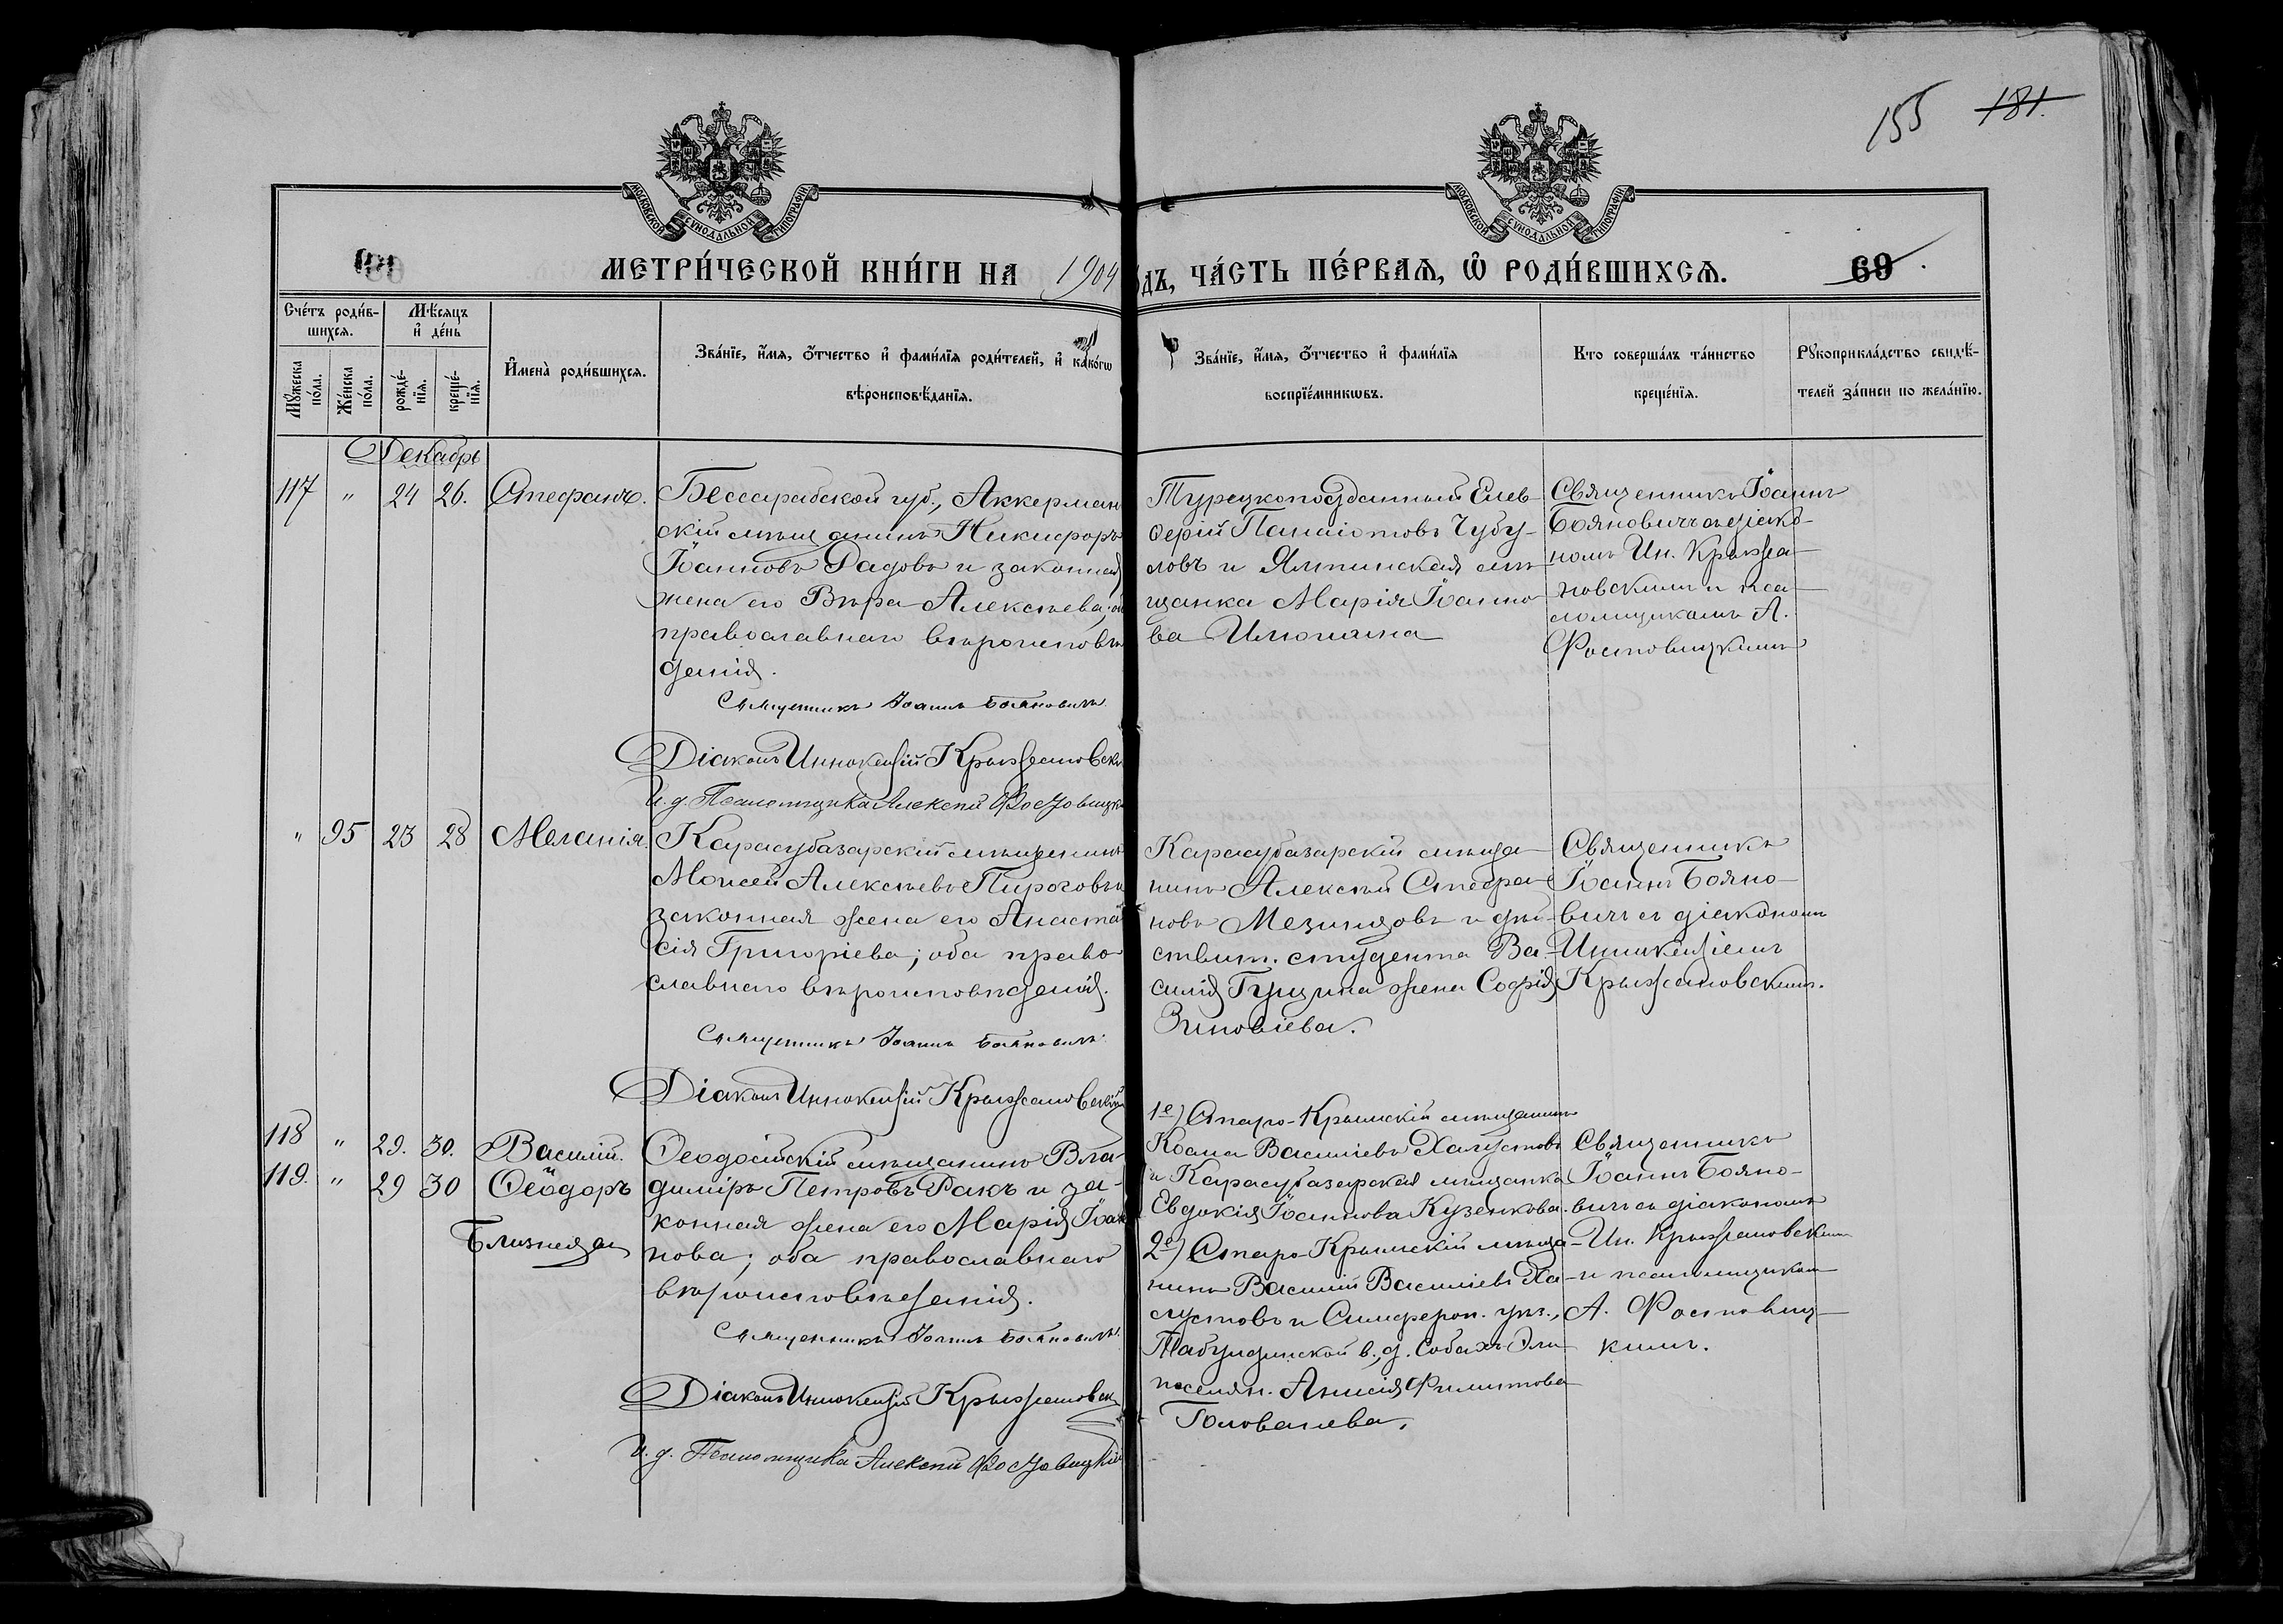 155 181.
МОСКОВСКОЙ СѴНОДАЛЬНОЙ ТИПОГРАФІИ
МОСКОВСКОЙ СѴНОДАЛЬНОЙ ТИПОГРАФІИ
МЕТРИ́ЧЕСКОЙ КНИ́ГИ НА 1904
ОДЪ, ЧА́СТЬ ПЕ́РВАЯ, Ѡ РОДИ́ВШИХСЯ. 69
Сче́тъ роди́в-
шихся.
Мꙋ́жеска по́ла.
Же́нска по́ла.
Мѣ́сяцъ и де́нь
рожде́-
нїя.
креще́-
нїя.
И҆мена̀ роди́вшихся.
Зва́нїе, и҆́мя, ѻ҆́тчество и҆ фами́лїя роди́телей, и҆ како́гѡ
вѣроисповѣ́данїя.
Зва́нїе, и҆́мя, ѻ҆́тчество и҆ фами́лїя
воспрїе́мникѡвъ.
Кто соверша́лъ та́инство
креще́нїя.
Рꙋкоприкла́дство свидѣ́-
телей за́писи по жела́нїю.
Декабрь
117 " 24 26. Стефанъ.
Бессарабской губ., Аккерман
скій мѣщанинъ Никифоръ
Іоанновъ Радовъ и законная
жена его Вѣра Алексѣева, об
православнаго вѣроисповѣ
данія.
Священникъ Іоаннъ Бояновичъ.
Діаконъ Иннокентій Крыжановскі
И. д. Псаломщика Алексѣй Фостовицкі
Турецкоподданный Елев
ферій Панаіотовъ Чубу-
ловъ и Ялтинская мѣ
щанка Марія Іоанно
ва
Священникъ Іоаннъ
Бояновичъ съ діако-
номъ Ин. Крыжа-
новскимъ и пса-
ломщикомъ А.
Фостовицкимъ
" 95 23 28 Меланія.
Карасубазарскій мѣщанинъ
Моисей Алексѣевъ Пироговъ и
законная жена его Анаста
сія Григоріева; оба право
славнаго вѣроисповѣданія.
Священникъ Іоаннъ Бояновичъ.
Діаконъ Иннокентій Крыжановскій
Карасубазарскій мѣща-
нинъ Алексѣй Стефа-
новъ и дѣй-
ствит. студента Ва-
силія Гущина жена Софія
Зиновіева.
Священникъ
Іоаннъ Бояно-
вичъ съ діакономъ
Иннокентіемъ
Крыжановскимъ.
118 " 29. 30. Василій.
119. " 29 30 Ѳеодоръ
Близнецы
Ѳеодосійскій мѣщанинъ Вла-
диміръ Петровъ Ракъ и за-
конная жена его Марія Іоан
нова; оба православнаго
вѣроисповѣданія.
Священникъ Іоаннъ Бояновичъ.
Діаконъ Иннокентій Крыжановск
И. д. Псаломщика Алексѣй Фостовицкій
1е) Старо-Крымскій мѣщанинъ
Косма Василіевъ Халустовъ
и Карасубазарская мѣщанка
Евдокія Іоаннова Кузенкова.
2е) Старо-Крымскій мѣща-
нинъ Василій Василіевъ Ха-
лустовъ и Симфероп. уѣз.,
Табулдинской в., д. Собахъ-Эли
поселян. Анисія Филиппова
Голованева.
Священникъ
Іоаннъ Бояно-
вичъ съ діакономъ
Ин. Крыжановскимъ
и псаломщикомъ
А. Фостовиц-
кимъ.